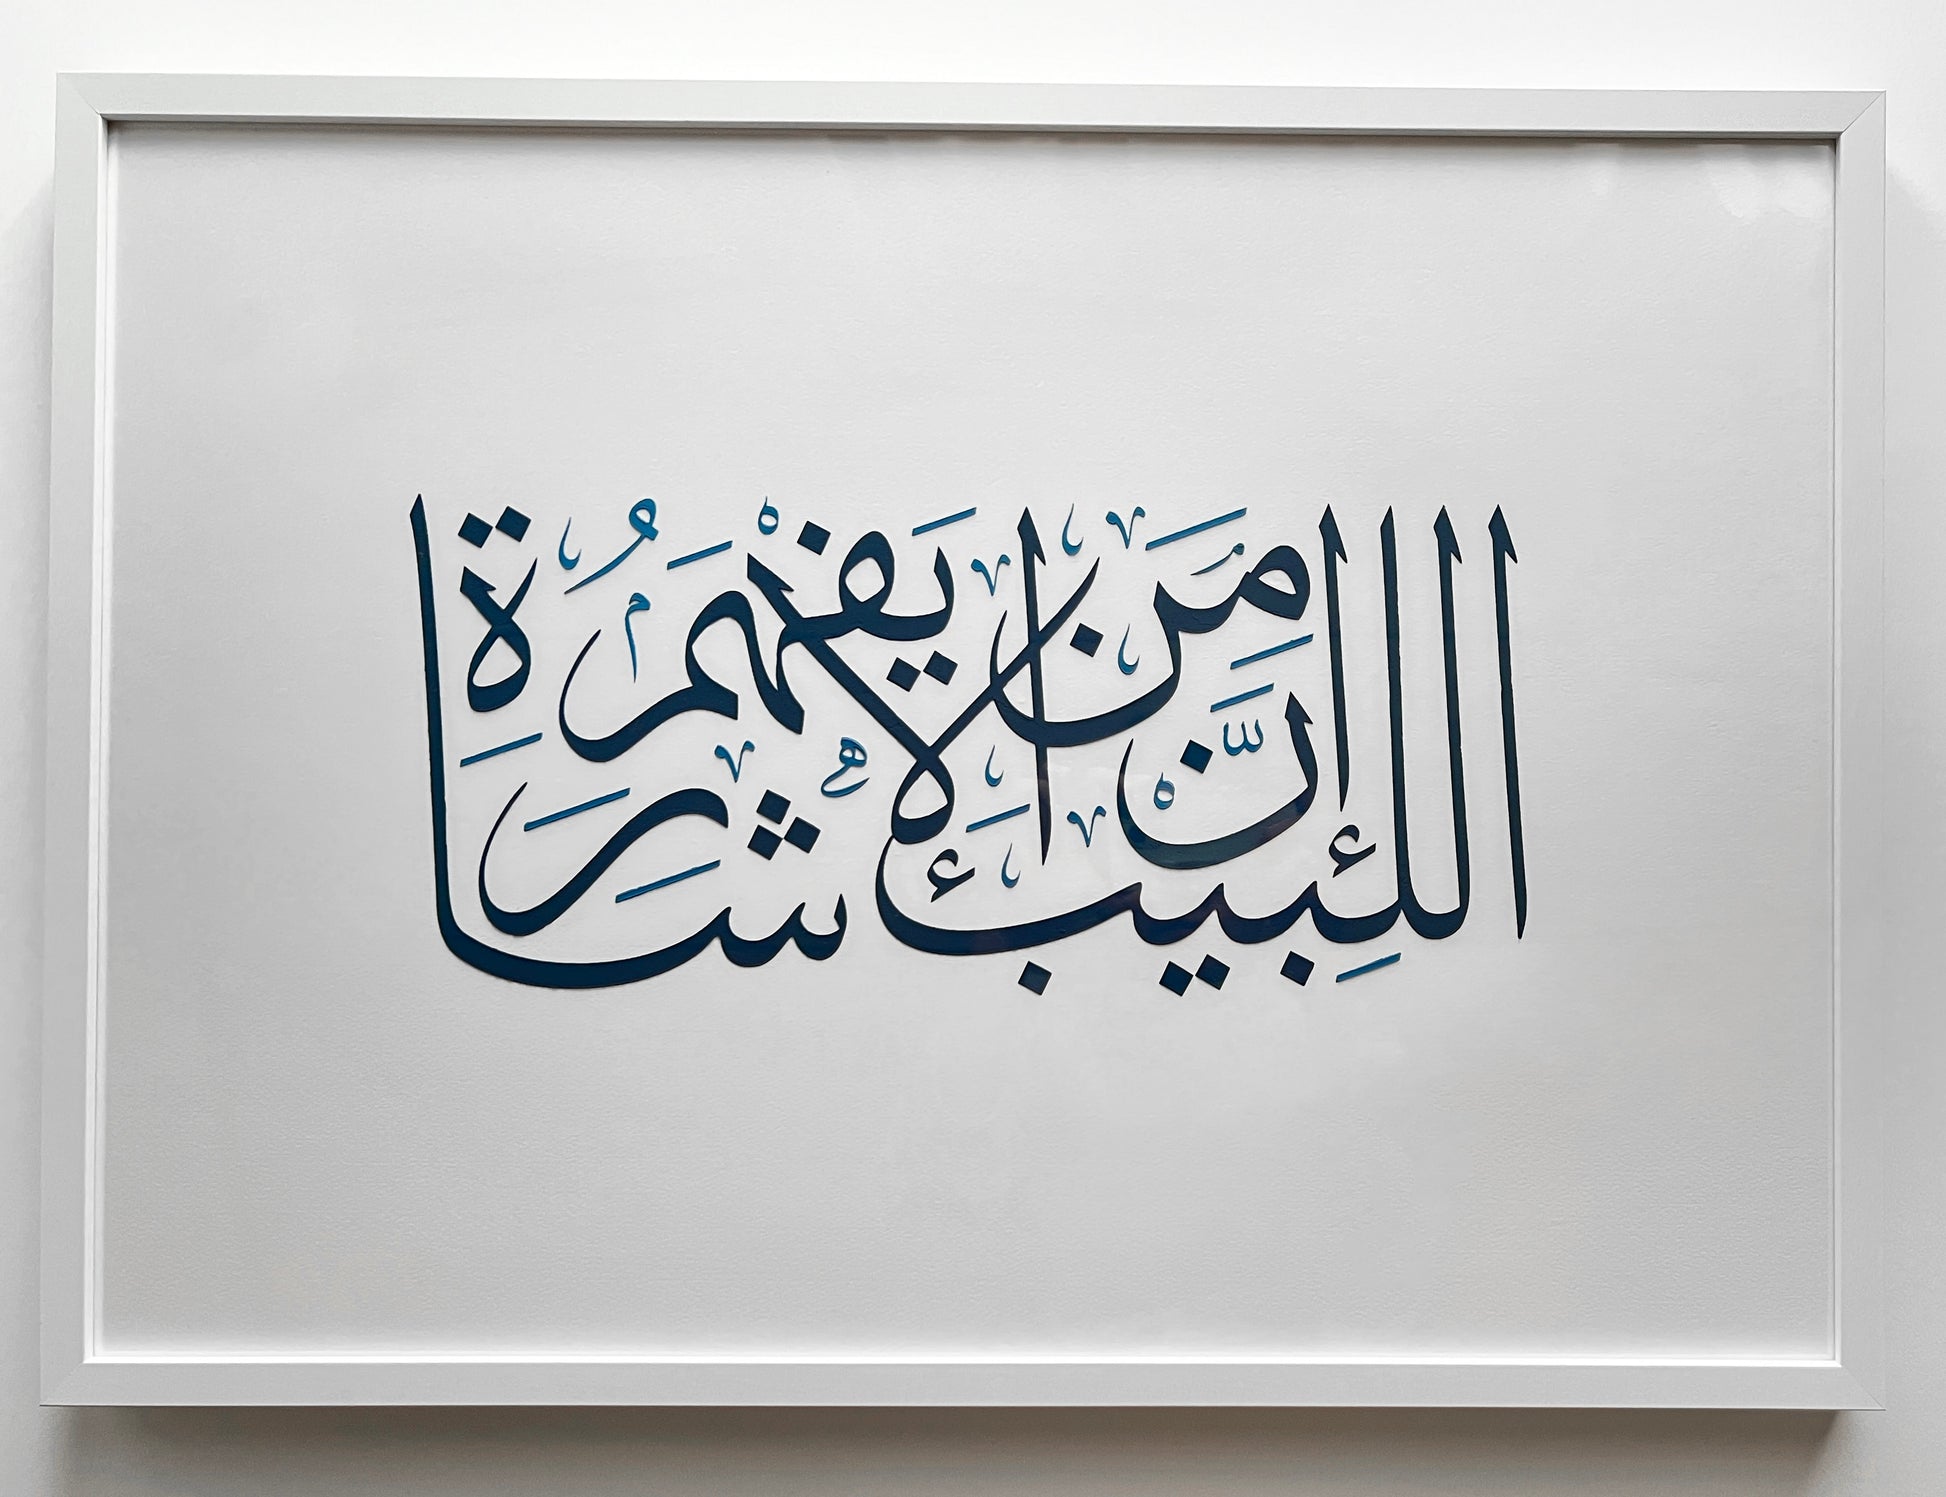 إنَّ اللبيب مِنَ الإشارَةِ يَفْهَمُ